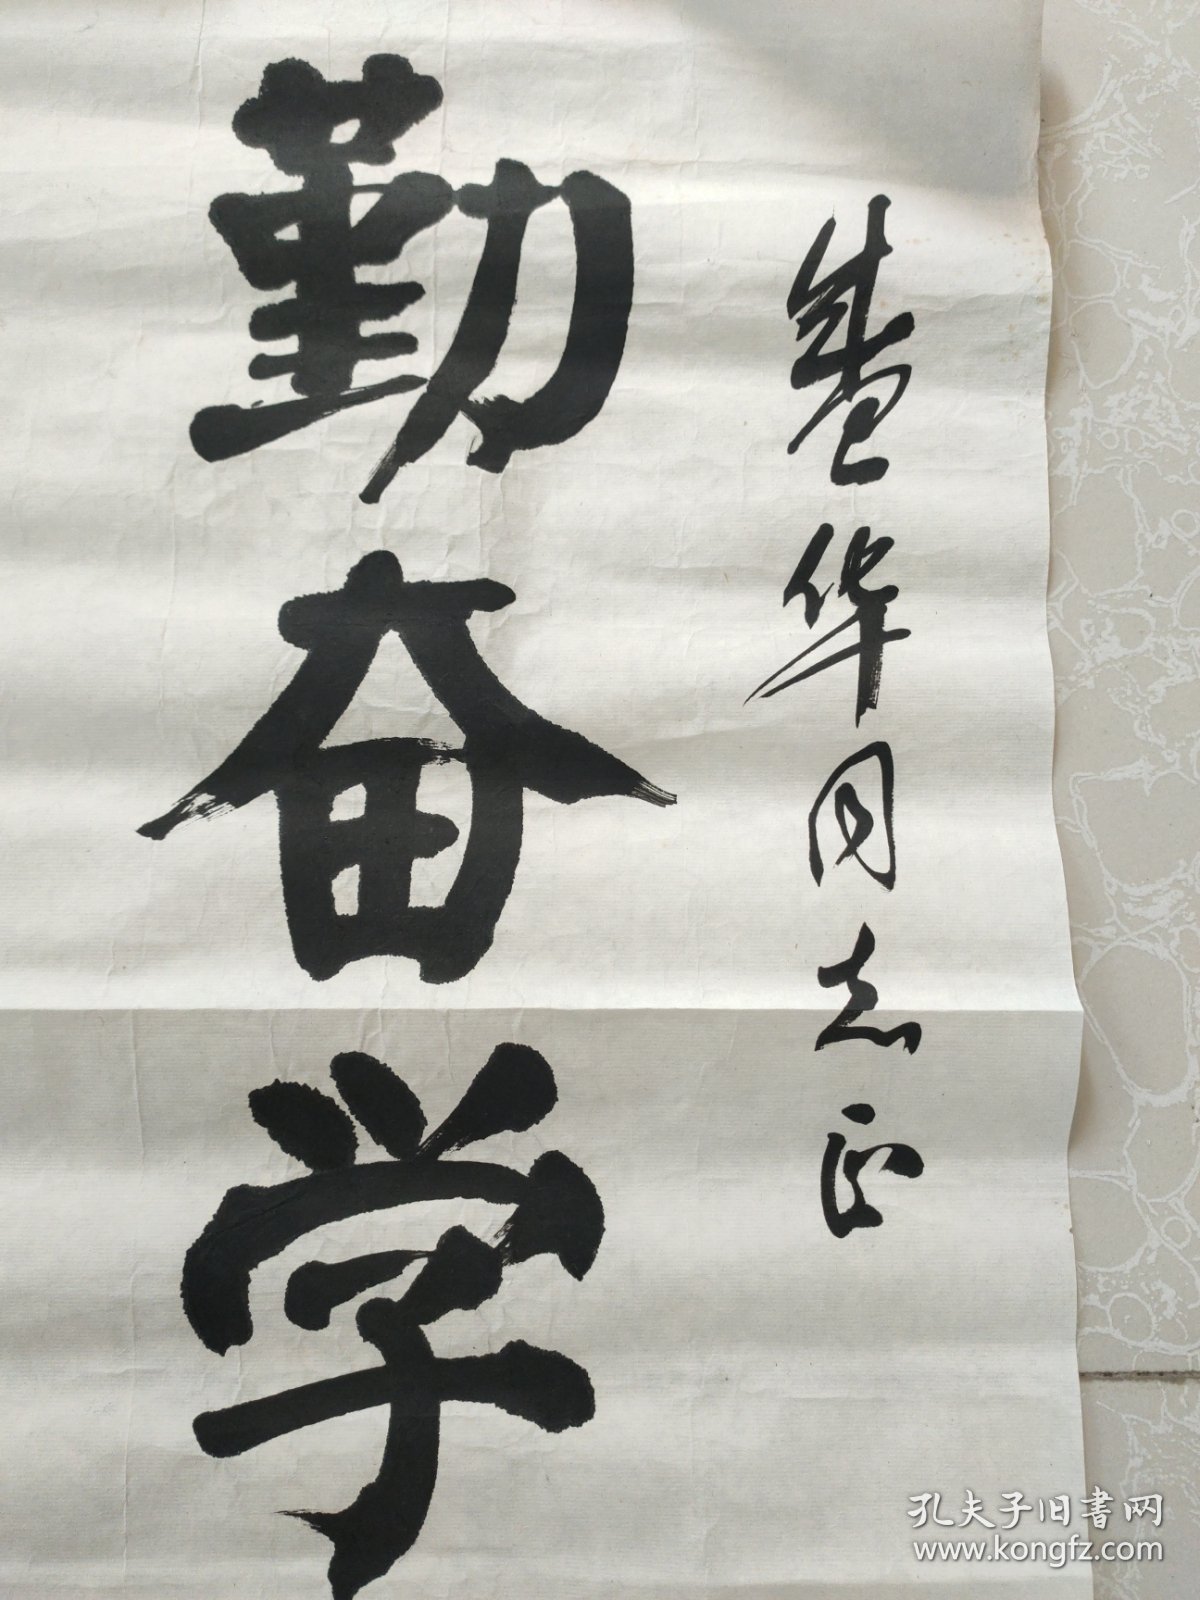 华同志正
勤奋学
孔夫子旧书网
www.kongfz.com